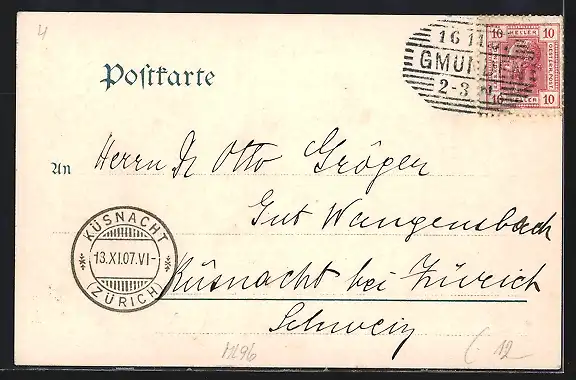 4
Postkarte
16 11
GMUNDEN
2-3 N
10 HELLER 10
10 10
An Herrn Dr Otto Gröger
Gut Wangensbach
Küsnacht bei Zürich
Schweiz
KÜSNACHT
13.XI.07.VI-
(ZÜRICH)
12